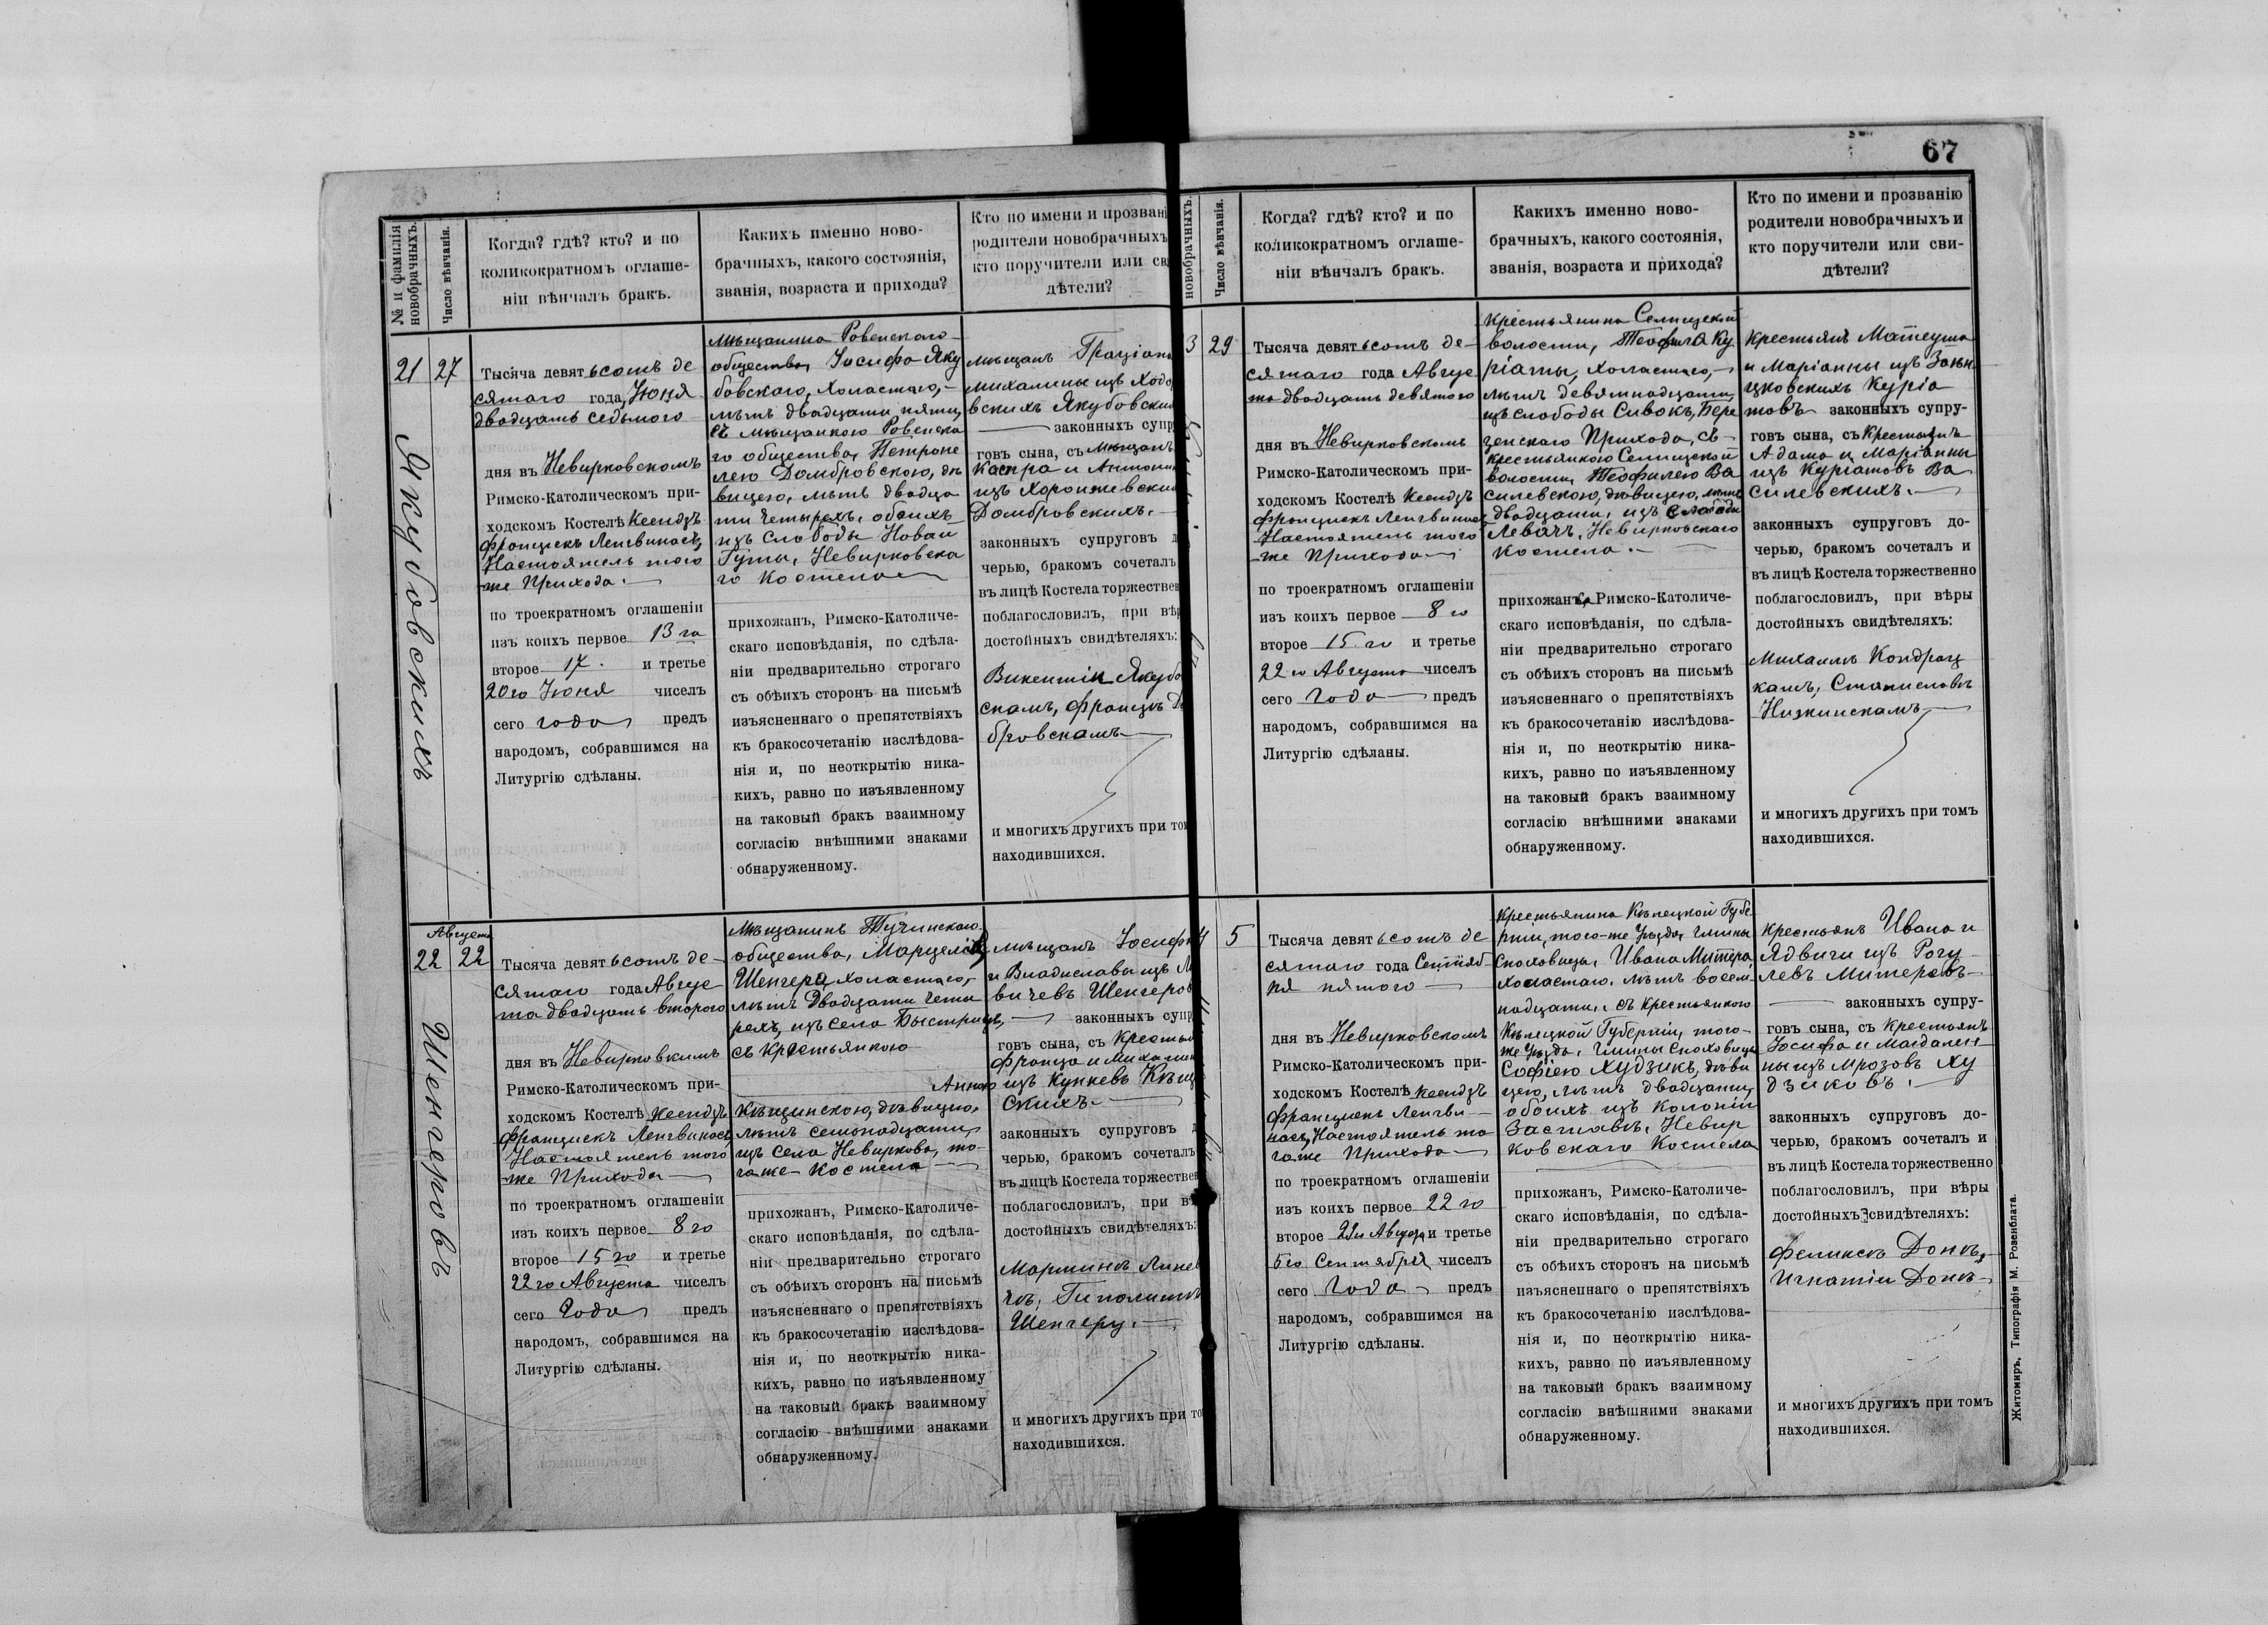 67
№ и фамилія
новобрачныхъ.
Число вѣнчанія.
Когда? гдѣ? кто? и по
коликократномъ оглаше-
ніи вѣнчалъ бракъ.
Какихъ именно ново-
брачныхъ, какого состоянія,
званія, возраста и прихода?
Кто по имени и прозвані
родители новобрачныхъ
кто поручители или св
дѣтели?
21
27
Якубовскихъ
Тысяча девятьсотъ де
сятаго года, Іюня
двадцать седьмого
дня въ Невирковскомъ
Римско-Католическомъ при-
ходскомъ Костелѣ Ксендзъ
Францискъ Ленгвинасъ,
Настоятель того
же Прихода.
по троекратномъ оглашеніи
изъ коихъ первое 13 го
второе 17. и третье
20го Іюня чиселъ
сего года предъ
народомъ, собравшимся на
Литургію сдѣланы.
Мѣщанина Ровенскаго
общества, Іосифа Яку
бовскаго, холастаго,
лѣтъ двадцати пяти,
съ мѣщанкою Ровенска
го общества, Петроне
лею Домбровскою, дѣ
вицею, лѣтъ двадца
ти четырехъ, обоихъ
изъ Слободы Новой
Гуты, Невирковска
го Костела
прихожан, Римско-Католиче-
скаго исповѣданія, по сдѣла-
ніи предварительно строгаго
съ обѣихъ сторонъ на письмѣ
изъясненнаго о препятствіяхъ
къ бракосочетанію изслѣдова-
нія и, по неоткрытію ника-
кихъ, равно по изъявленному
на таковый бракъ взаимному
согласію внѣшними знаками
обнаруженному.
Мѣщанъ Граціана
Михалины изъ Ходо
вскихъ Якубовски
законныхъ супр
говъ сына, съ Мѣщанъ
Каспра и Антони
изъ Хоронжевски
Домбровскихъ.
законныхъ супруговъ д
черью, бракомъ сочеталъ
въ лицѣ Костела торжествен
поблагословилъ, при вѣр
достойныхъ свидѣтеляхъ:
Викентіи Якубо
скамъ, Францъ До
бровскамъ
и многихъ другихъ при то
находившихся.
Августа
22
22
Шенгеровъ
Тысяча девятьсотъ де-
сятаго года Авгус
та двадцать второго
дня въ Невирковкимъ
Римско-Католическомъ при-
ходскомъ Костелѣ Ксендзъ
Францискъ Ленгвинасъ,
Настоятель того
же Прихода
по троекратномъ оглашеніи
изъ коихъ первое 8го
второе 15го и третье
22го Августа чиселъ
сего года предъ
народомъ, собравшимся на
Литургію сдѣланы.
Мѣщанинъ Тучинскаго
общества, Марцелія
Шенгера холастаго,
лѣтъ двадцати четы
рехъ, изъ села Быстрицъ,
съ Крестьянкою
Анною
Кѣщинскою, дѣвицею,
лѣтъ семнадцати
изъ села Невиркова, то-
гоже Костела
прихожан, Римско-Католиче-
скаго исповѣданія, по сдѣла-
ніи предварительно строгаго
съ обѣихъ сторонъ на письмѣ
изъясненнаго о препятствіяхъ
къ бракосочетанію изслѣдова-
нія и, по неоткрытію ника-
кихъ, равно по изъявленному
на таковый бракъ взаимному
согласію внѣшними знаками
обнаруженному.
Мѣщанъ Іосифа
и Владиславы изъ
вичевъ Шенгеров
законныхъ супр
говъ сына, съ Крестьян
Франца и Михалин
изъ Купкевъ Кѣщ
скихъ.
законныхъ супруговъ д
черью, бракомъ сочеталъ
въ лицѣ Костела торжествен
поблагословилъ, при вѣ
достойныхъ свидѣтеляхъ:
Мартинъ Линев
чъ, Гиполитъ
Шенгеру.
и многихъ другихъ при то
находившихся.
новобрачныхъ.
Число вѣнчанія.
Когда? гдѣ? кто? и по
коликократномъ оглаше-
ніи вѣнчалъ бракъ.
Какихъ именно ново-
брачныхъ, какого состоянія,
званія, возраста и прихода?
Кто по имени и прозванію
родители новобрачныхъ и
кто поручители или сви-
дѣтели?
3
29
Тысяча девятьсотъ де-
сятаго года Авгус
та двадцать девятого
дня въ Невирковскомъ
Римско-Католическомъ при-
ходскомъ Костелѣ Ксендзъ
Францискъ Ленгвинасъ
Настоятель того
же Прихода
по троекратномъ оглашеніи
изъ коихъ первое 8го
второе 15.го и третье
22го Августа чиселъ
сего года предъ
народомъ, собравшимся на
Литургію сдѣланы.
Крестьянина Селищской
волости, Теофила Ку
ріаты, холастаго,
лѣтъ девятнадцати,
изъ слободы Сивокъ, Бере
зенскаго Прихода, съ
крестьянкою Селищской
волости, Теофилею Ва
силевскою, дѣвицею, лѣтъ
двадцати, изъ Слободы
Левачъ, Невирковскаго
Костела.
прихожан, Римско-Католиче-
скаго исповѣданія, по сдѣла-
ніи предварительно строгаго
съ обѣихъ сторонъ на письмѣ
изъясненнаго о препятствіяхъ
къ бракосочетанію изслѣдова-
нія и, по неоткрытію ника-
кихъ, равно по изъявленному
на таковый бракъ взаимному
согласію внѣшними знаками
обнаруженному.
Крестьянъ Матеуша
и Маріанны изъ
Куріа
товъ законныхъ супру-
говъ сына, съ Крестьянъ
Адама и Маріанны
изъ Куріатовъ Ва
силевскихъ.
законныхъ супруговъ до-
черью, бракомъ сочеталъ и
въ лицѣ Костела торжественно
поблагословилъ, при вѣры
достойныхъ свидѣтеляхъ:
Михаилъ Кондрац
камъ, Станиславъ
Низкинскамъ
и многихъ другихъ при томъ
находившихся.
4
5
Тысяча девятьсотъ де
сятаго года Сентяб-
ря пятого
дня въ Невирковскомъ
Римско-Католическомъ при-
ходскомъ Костелѣ Ксендзъ
Францискъ Ленгви-
насъ, Настоятель то
гоже Прихода
по троекратномъ оглашеніи
изъ коихъ первое 22го
второе 29го Августа и третье
5го Сентября чиселъ
сего года предъ
народомъ, собравшимся на
Литургію сдѣланы.
Крестьянина Кѣлецкой Губе-
рніи, того-же Уѣзда, Гмины
Снаховицы, Ивана Митера,
холастаго, лѣтъ восем-
надцати, съ крестьянкою
Кѣлецкой Губерніи, того-
же Уѣзда, Гмины Снаховицы
Софіею Худзикъ, дѣви
цею, лѣтъ двадцати,
обоихъ изъ Колоніи
Заставъ, Невир
ковскаго Костела
прихожан, Римско-Католиче-
скаго исповѣданія, по сдѣла-
ніи предварительно строгаго
съ обѣихъ сторонъ на письмѣ
изъясненнаго о препятствіяхъ
къ бракосочетанію изслѣдова-
нія и, по неоткрытію ника-
кихъ, равно по изъявленному
на таковый бракъ взаимному
согласію внѣшними знаками
обнаруженному.
Крестьянъ Ивана и
Ядвиги изъ Рогу-
левъ Митеровъ
законныхъ супру-
говъ сына, съ Крестьянъ
Іосифа и Магдален
ны изъ Мрозовъ Ху
дзиковъ.
законныхъ супруговъ до-
черью, бракомъ сочеталъ и
въ лицѣ Костела торжественно
поблагословилъ, при вѣры
достойныхъ свидѣтеляхъ:
Феликсъ Донъ,
Игнатіи Донъ
и многихъ другихъ при томъ
находившихся.
Житомиръ, Типографія М. Розенблата.